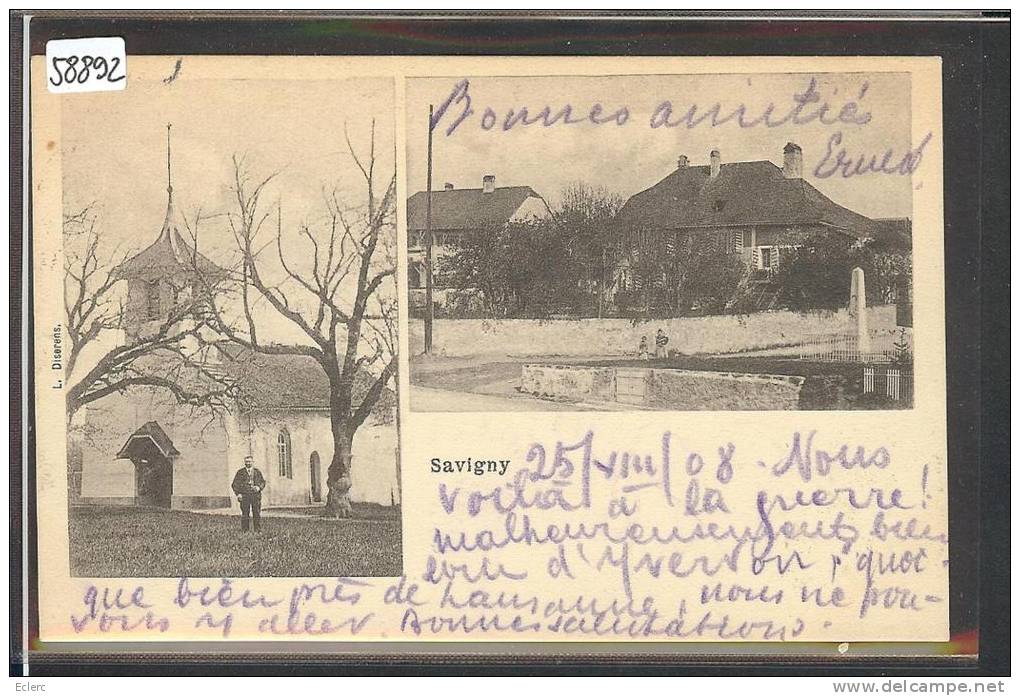 58892
Bonnes amitiés
Ernest
L. Diserens.
Savigny
25/VIII/08. Nous
voilà à la guerre!
malheureusement bien
loin d'Yverdon, quoi-
que bien près de Lausanne, nous ne pou-
vons y aller. Bonnes salutations.
Eclerc
www.delcampe.net